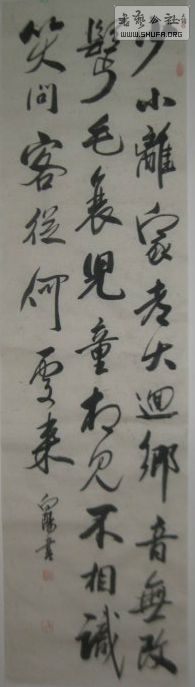 少小離家老大迴鄉音無改
鬢毛衰兒童相見不相識
笑問客從何處來
向陽書
WWW.SHUFA.ORG